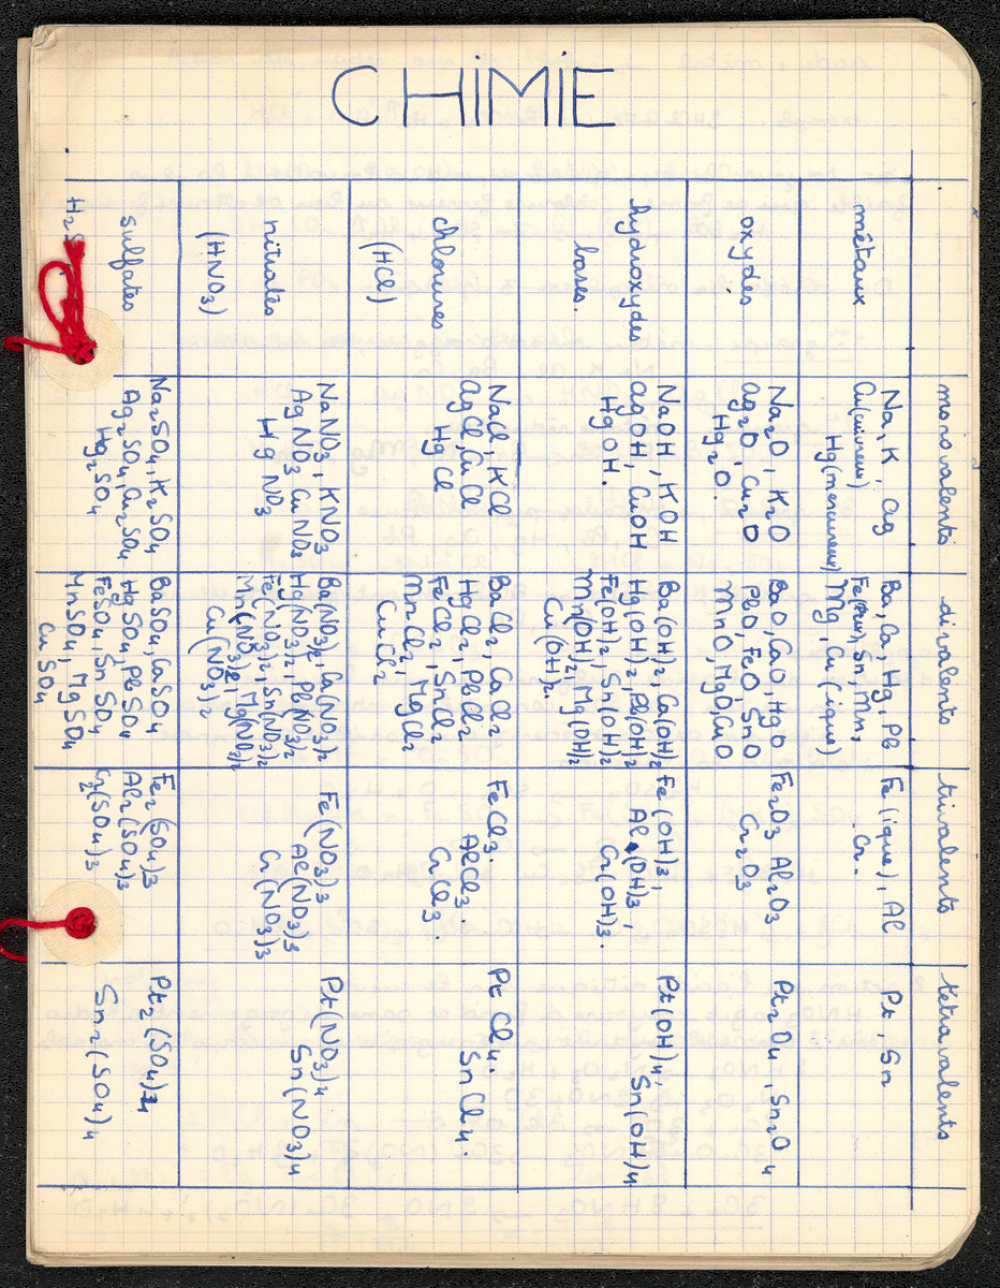 CHIMIE
monovalents
divalents
trivalents
tétravalents
métaux
Na, K, Ag
Cu (cuivreux)
Hg (mercureux)
Ba, Ca, Hg, Pb
Fe, Sn, Mn,
Mg, Cu (ique)
Fe (ique), Al
Cr.
Pt, Sn
oxydes
Na2O, K2O
Ag2O, Cu2O
Hg2O.
BaO, CaO, HgO
PbO, FeO, SnO
MnO, MgO, CuO
Fe2O3 Al2O3
Cr2O3
Pt2O4, Sn2O4
hydroxydes
bases.
NaOH, KOH
AgOH, CuOH
HgOH.
Ba(OH)2, Ca(OH)2
Hg(OH)2, Pb(OH)2
Fe(OH)2, Sn(OH)2
Mn(OH)2, Mg(OH)2
Cu(OH)2,
Fe(OH)3,
Al(OH)3,
Cr(OH)3.
Pt(OH)4,
Sn(OH)4
chlorures
(HCl)
NaCl, KCl
AgCl, CuCl
HgCl
BaCl2, CaCl2
HgCl2, PbCl2
FeCl2, SnCl2
MnCl2, MgCl2
CuCl2
FeCl3.
AlCl3.
CrCl3.
PtCl4.
SnCl4.
nitrates
(HNO3)
NaNO3, KNO3
AgNO3 CuNO3
HgNO3
Ba(NO3)2, Ca(NO3)2
Hg(NO3)2, Pb(NO3)2
Fe(NO3)2, Sn(NO3)2
Mn(NO3)2, Mg(NO3)2
Cu(NO3)2
Fe(NO3)3
Al(NO3)3
Cr(NO3)3
Pt(NO3)4
Sn(NO3)4
sulfates
H2S
Na2SO4, K2SO4
Ag2SO4, Cu2SO4
Hg2SO4
BaSO4, CaSO4
HgSO4, PbSO4
FeSO4, SnSO4
MnSO4, MgSO4
CuSO4
Fe2(SO4)3
Al2(SO4)3
Cr2(SO4)3
Pt2(SO4)4
Sn2(SO4)4